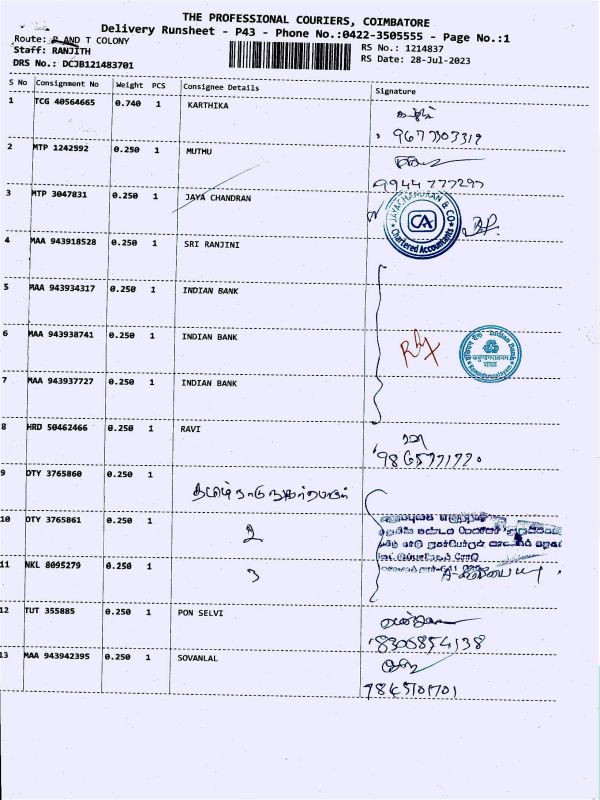 THE PROFESSIONAL COURIERS, COIMBATORE
Delivery Runsheet - P43 - Phone No.:0422-3505555 - Page No.:1
Route: P AND T COLONY
RS No.: 1214837
Staff: RANJITH
RS Date: 28-Jul-2023
DRS No.: DCJB121483701
S No Consignment No Weight PCS Consignee Details Signature
1 TCG 40564665 0.740 1 KARTHIKA
2 MTP 1242592 0.250 1 MUTHU
9944777297
3 MTP 3047831 0.250 1 JAYA CHANDRAN
JAYACHANDRAN & CO
CA
Chartered Accountants
4 MAA 943918528 0.250 1 SRI RANJINI
5 MAA 943934317 0.250 1 INDIAN BANK
6 MAA 943938741 0.250 1 INDIAN BANK
Indian Bank
7 MAA 943937727 0.250 1 INDIAN BANK
8 HRD 50462466 0.250 1 RAVI
9 DTY 3765860 0.250 1
10 DTY 3765861 0.250 1 2
11 NKL 8095279 0.250 1 3
12 TUT 355885 0.250 1 PON SELVI
8300854138
13 MAA 943942395 0.250 1 SOVANLAL